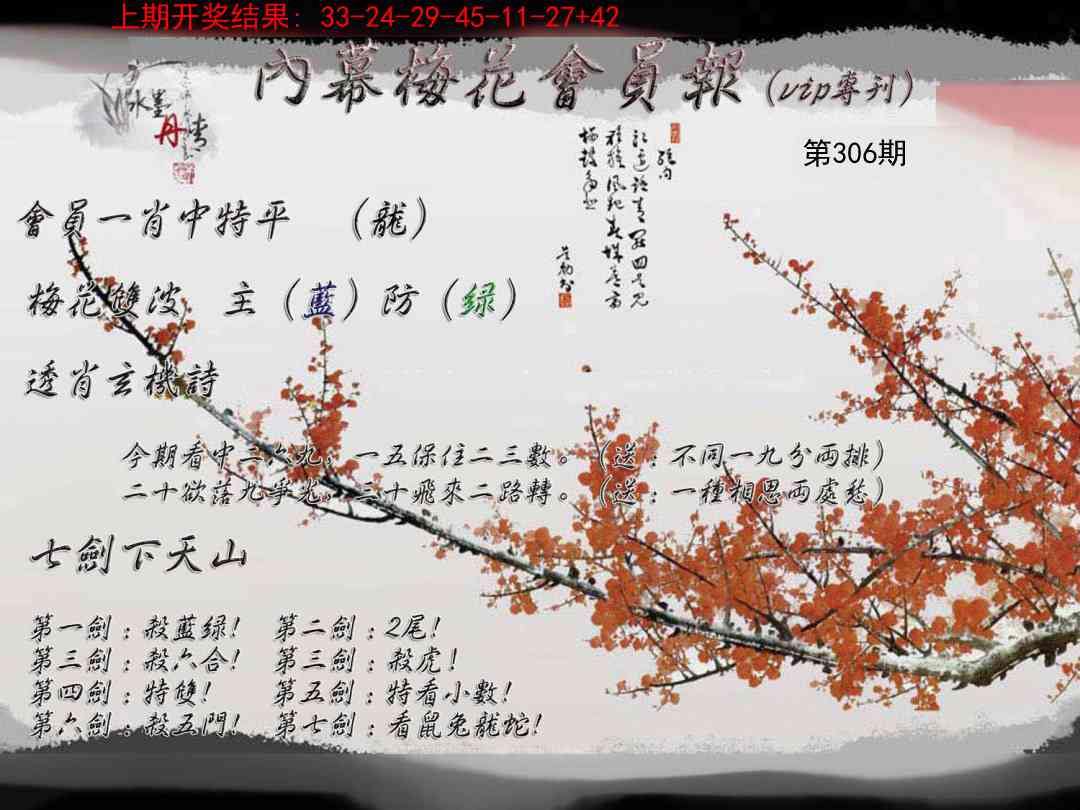 上期开奖结果: 33-24-29-45-11-27+42
內幕梅花會員報(vip專刊)
水墨丹青
第306期
會員一肖中特平 （龍）
梅花雙波 主（藍）防（绿）
透肖玄機詩
今期看中三六九，一五保住二三數。（送：不同一九分兩排）
二十欲落九爭光，三十飛來二路轉。（送：一種相思兩處愁）
七劍下天山
第一劍：殺藍绿! 第二劍：2尾!
第三劍：殺六合! 第三劍：殺虎!
第四劍：特雙! 第五劍：特看小數!
第六劍：殺五門! 第七劍：看鼠兔龍蛇!